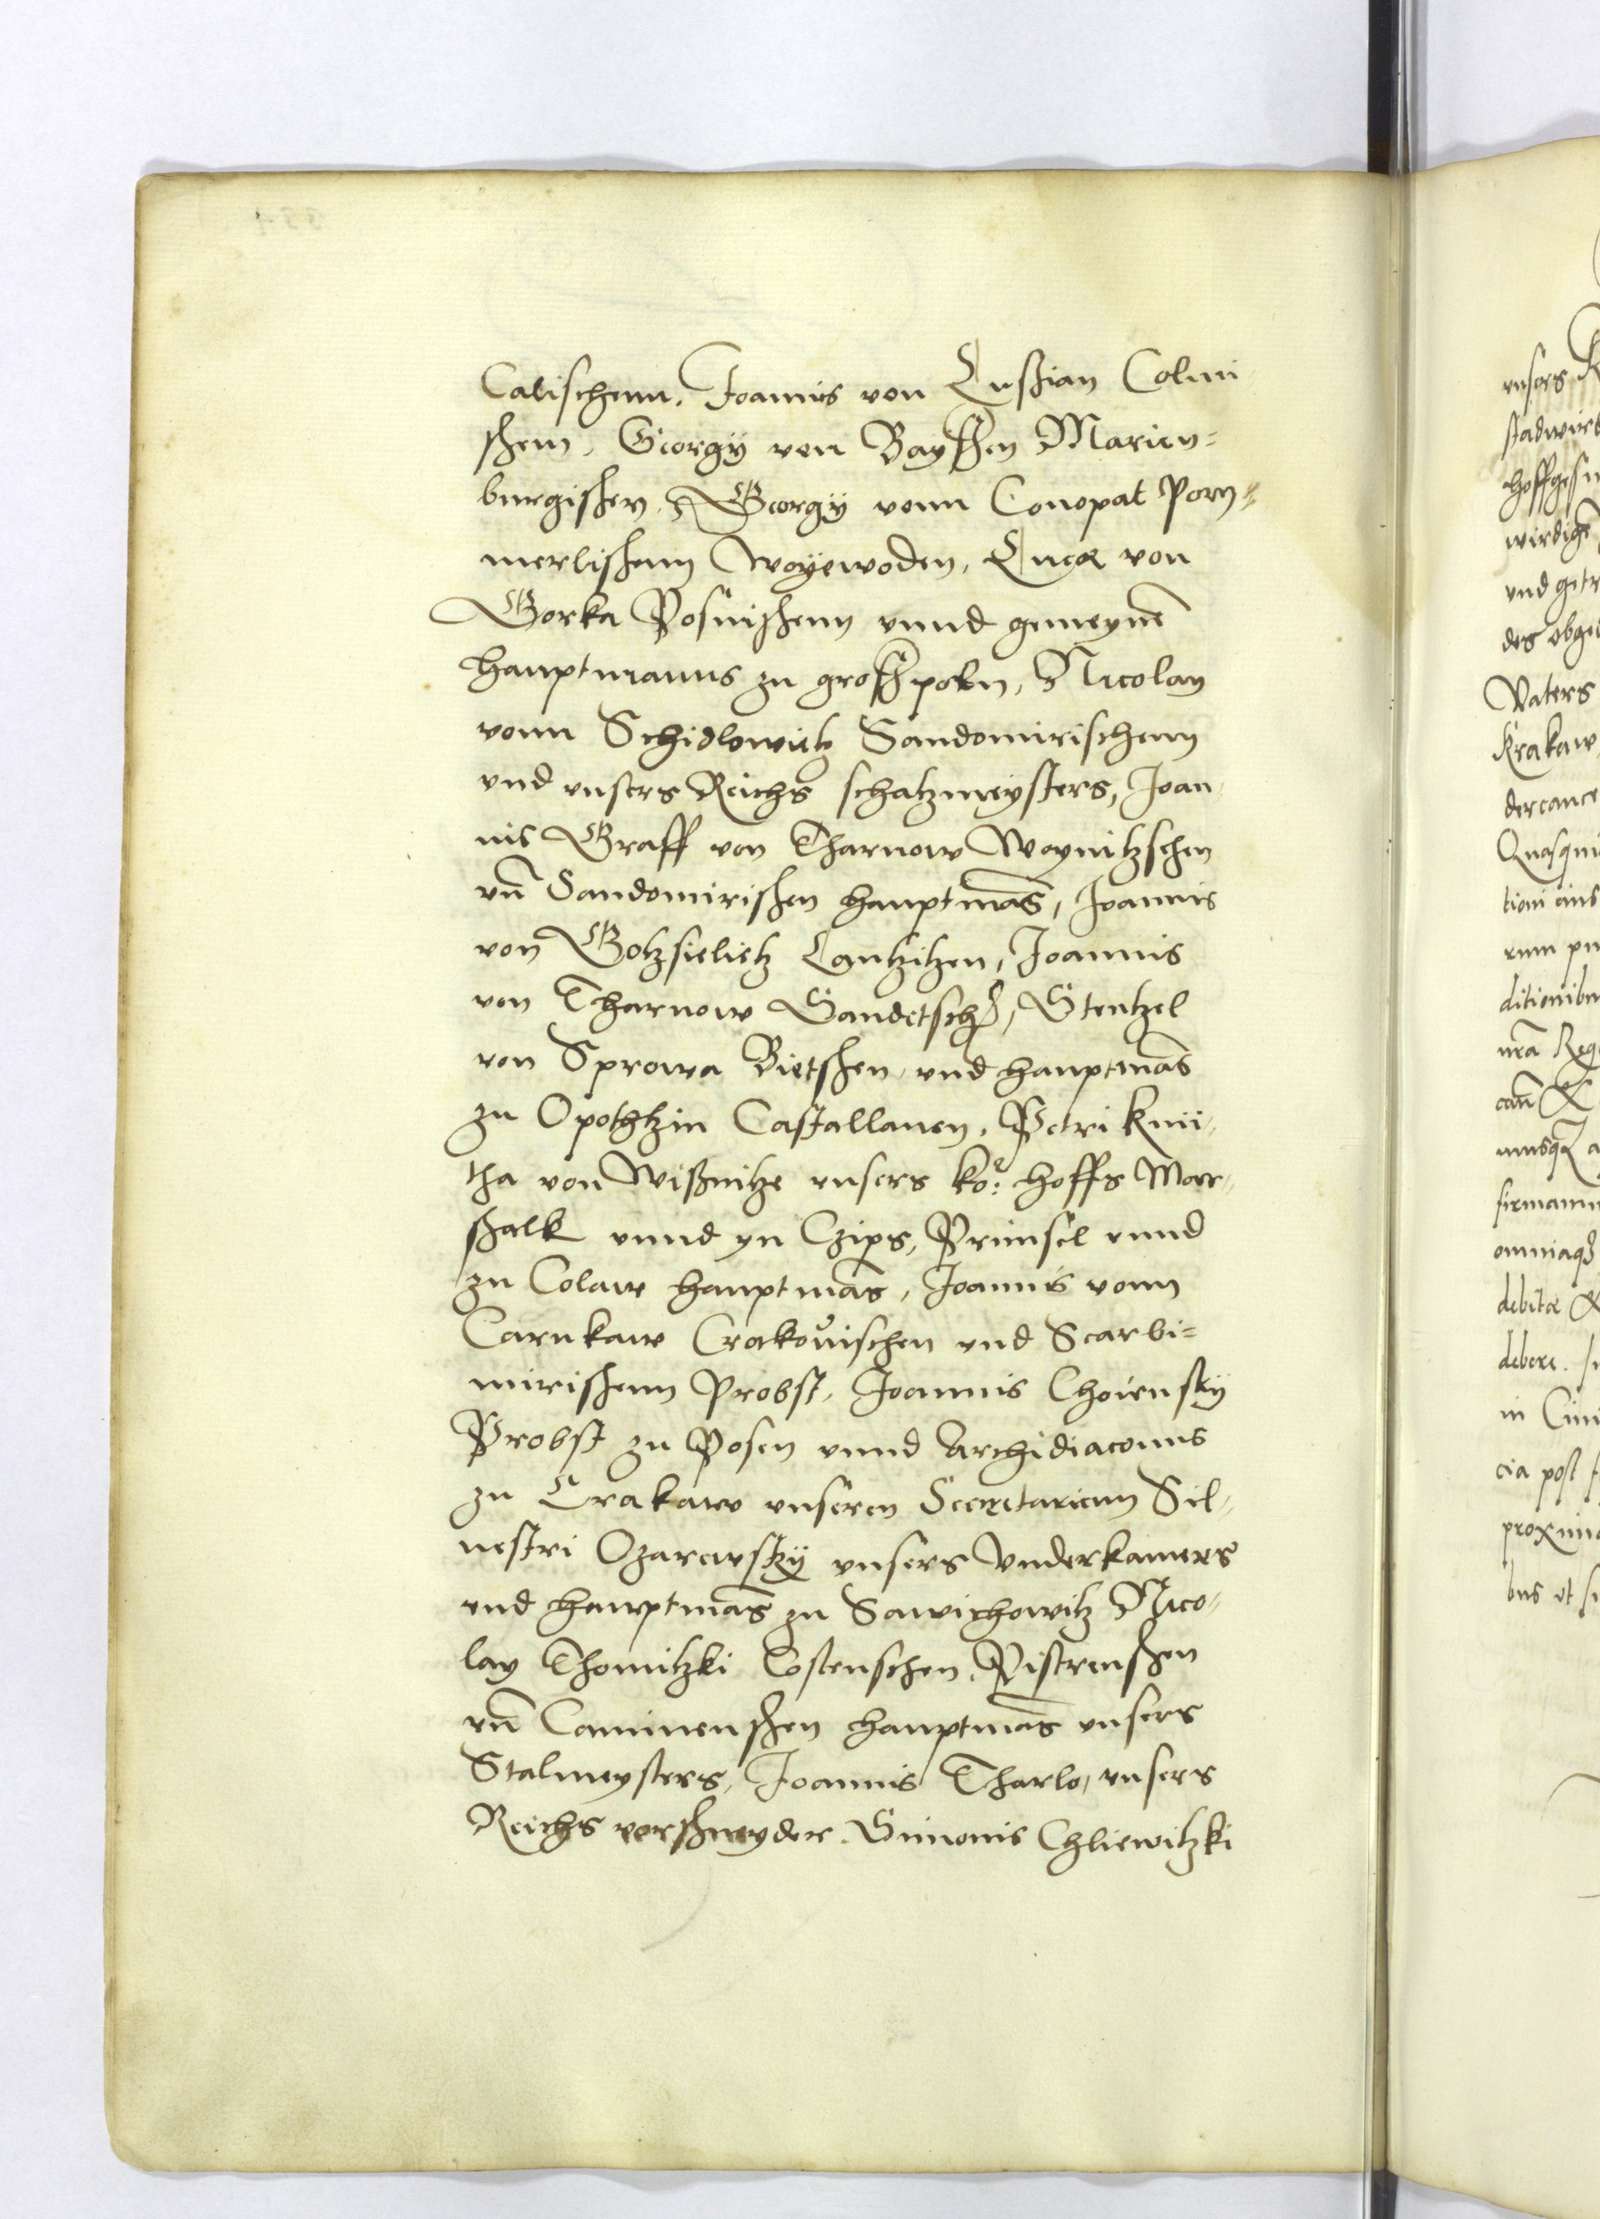 Calischenn, Joannis von Lußian Colmi
schenn, Georgÿ von Bayschen Marien=
burgischen, Georgÿ vonn Conopat Pom=
merlischenn Woyewoden, Luce von
Gorka Posnischenn vnnd gemeynē
hauptmanns zu großpoln, Nicolay
vonn Schidlowitz Sandomirischenn
vnd vnsers Reichs schatzmeysters, Joan
nis Graff von Tharnow Woynitzschen
vn̄ Sandomirischen hauptmās, Joannis
von Golzsielietz Lantzitzen, Joannis
von Tharnow Sandetsch, Stentzel
von Sprowa Bietschen vnd hauptmās
zu Opothtzin Castallanen, Petri Kmi
tha von Wißnitze vnsers ko: hoffs Mar
schalk vnnd yn Czips, Primsel vnnd
zu Colaw hauptmās, Joannis vonn
Carnkaw Crakouischen vnd Scarbi=
mirischenn Probst, Joannis Choiensky
Probst zu Posen vnnd Archidiaconus
zu Crakaw vnseren Secretarienn Sil
uestri Ozarowskÿ vnsers Vnderkamers
vnd hawptmās zu Sawichowitz Nico
lay Thomitzki Costenschen, Pistrenschen
vn̄ Caminenschen hauptmās vnsers
Stalmeysters, Joannis Tharlo, vnsers
Reichs vorschneyder. Simonis Chliewitzki
vnsers
hoffgesin
vnd getr
Vaters
Krakaw
tioni eius
ditionibu
omniaq
debere.
cia post
proxim